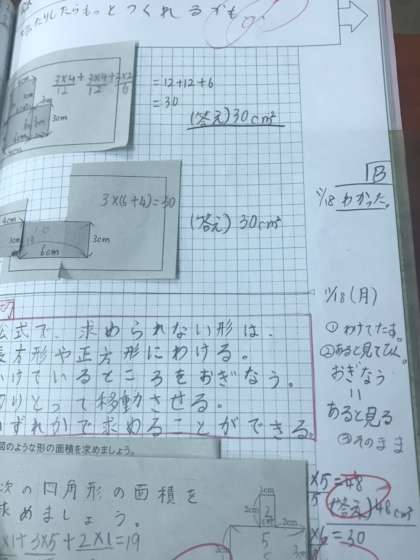 たりしたらもっと つくれるかも
3×4+3×4+3×2
12 12 6
=12+12+6
=30
3cm
(答え)30cm²
3×(6+4)=30
4cm
3cm
6cm
3cm
(答え) 30cm²
B
11/18 わかった。
公式で、求められない形は、
長方形や正方形にわける。
かけているところをおぎなう。
切りとって移動させる。
いずれかで求めることができる。
11/18(月)
①わけてたす。
②あると見てひく。
おぎなう
=
あると見る
③そのまま
図のような形の面積を求めましょう。
次の四角形の面積を
求めましょう。
×1+3×5+2×1=19
2cm
2
3cm
2cm
5
×5=48
(答え)48cm²
×6=30